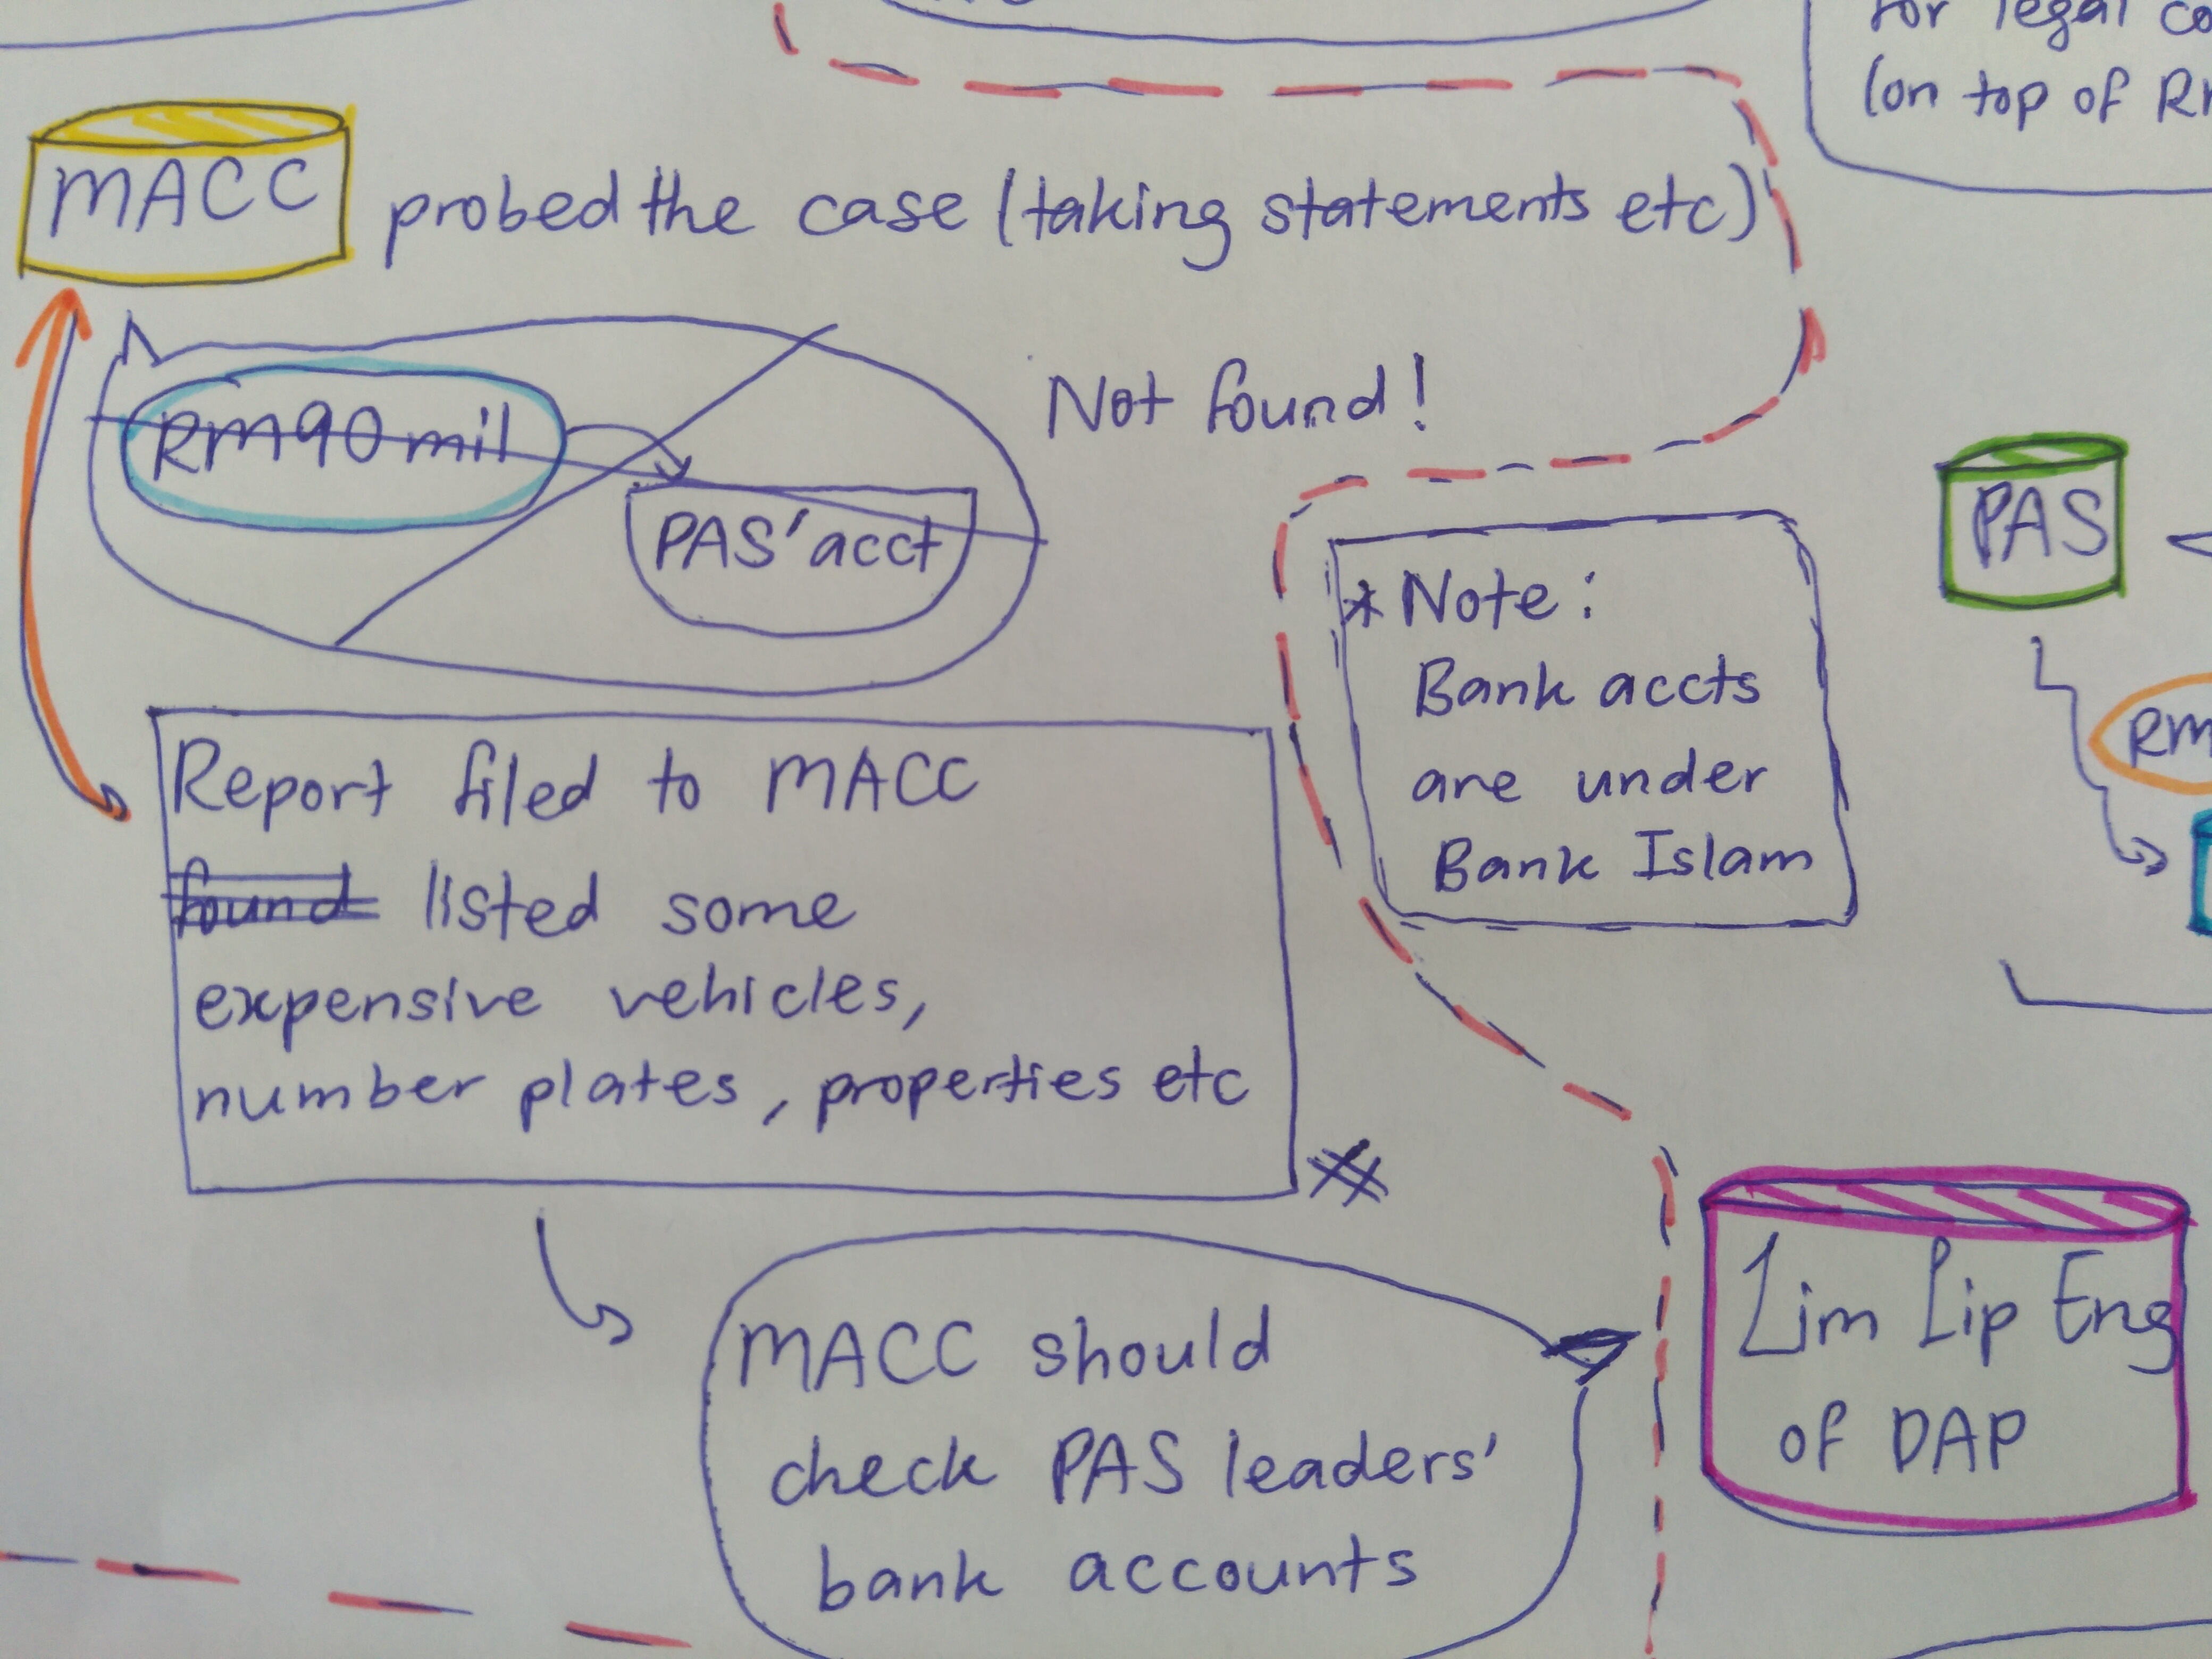 for legal
(on top of
MACC
probed the case (taking statements etc)
RM90 mil
PAS' acct
Not found!
PAS
RM
* Note:
Bank accts
are under
Bank Islam
Report filed to MACC
found listed some
expensive vehicles,
number plates, properties etc
MACC should
check PAS leaders'
bank accounts
Lim Lip Eng
of DAP